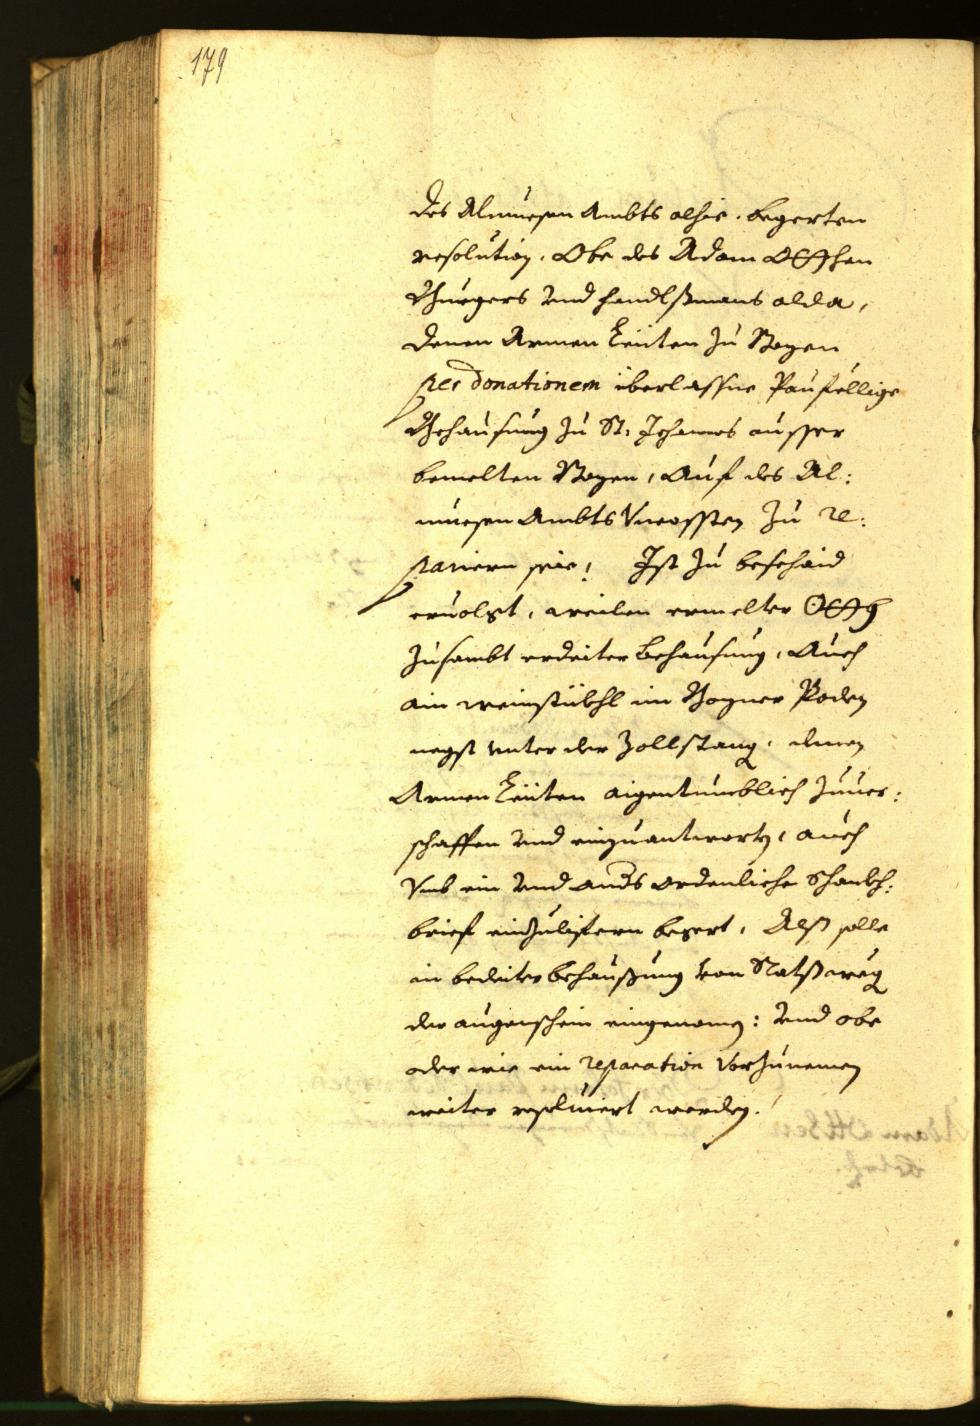 179
des Almuesen Ambts alhie. begerten
resolution. Obe des Adam Offhen
Burgers und handlßmans alda,
denen Armen Leüten zu Bozen
per donationem überlassne Paufellige
Behausung zu St: Johannes ausser
bemelten Bozen, Auf des Al:
muesen Ambts Vncossten zu re:
pariern seie! Ist zu beschaid
ervolgt, weilen ermelter Offh
zusambt erdeiter Behausung, Auch
ain weinstübhl im Bozner Poden
negst unter der Zollstang, denen
Armen Leüten aigentumblich zuver:
schaffen und einzuantworten, auch
Vmb ein und anders ordenliche Schankh:
brief einzulifern begert, Alß solle
in bedeiter behaußung von Ratß weg
der augenschein eingenomen: und obe
oder wie ein reparation vorzunemen
weiter resolviert werden.